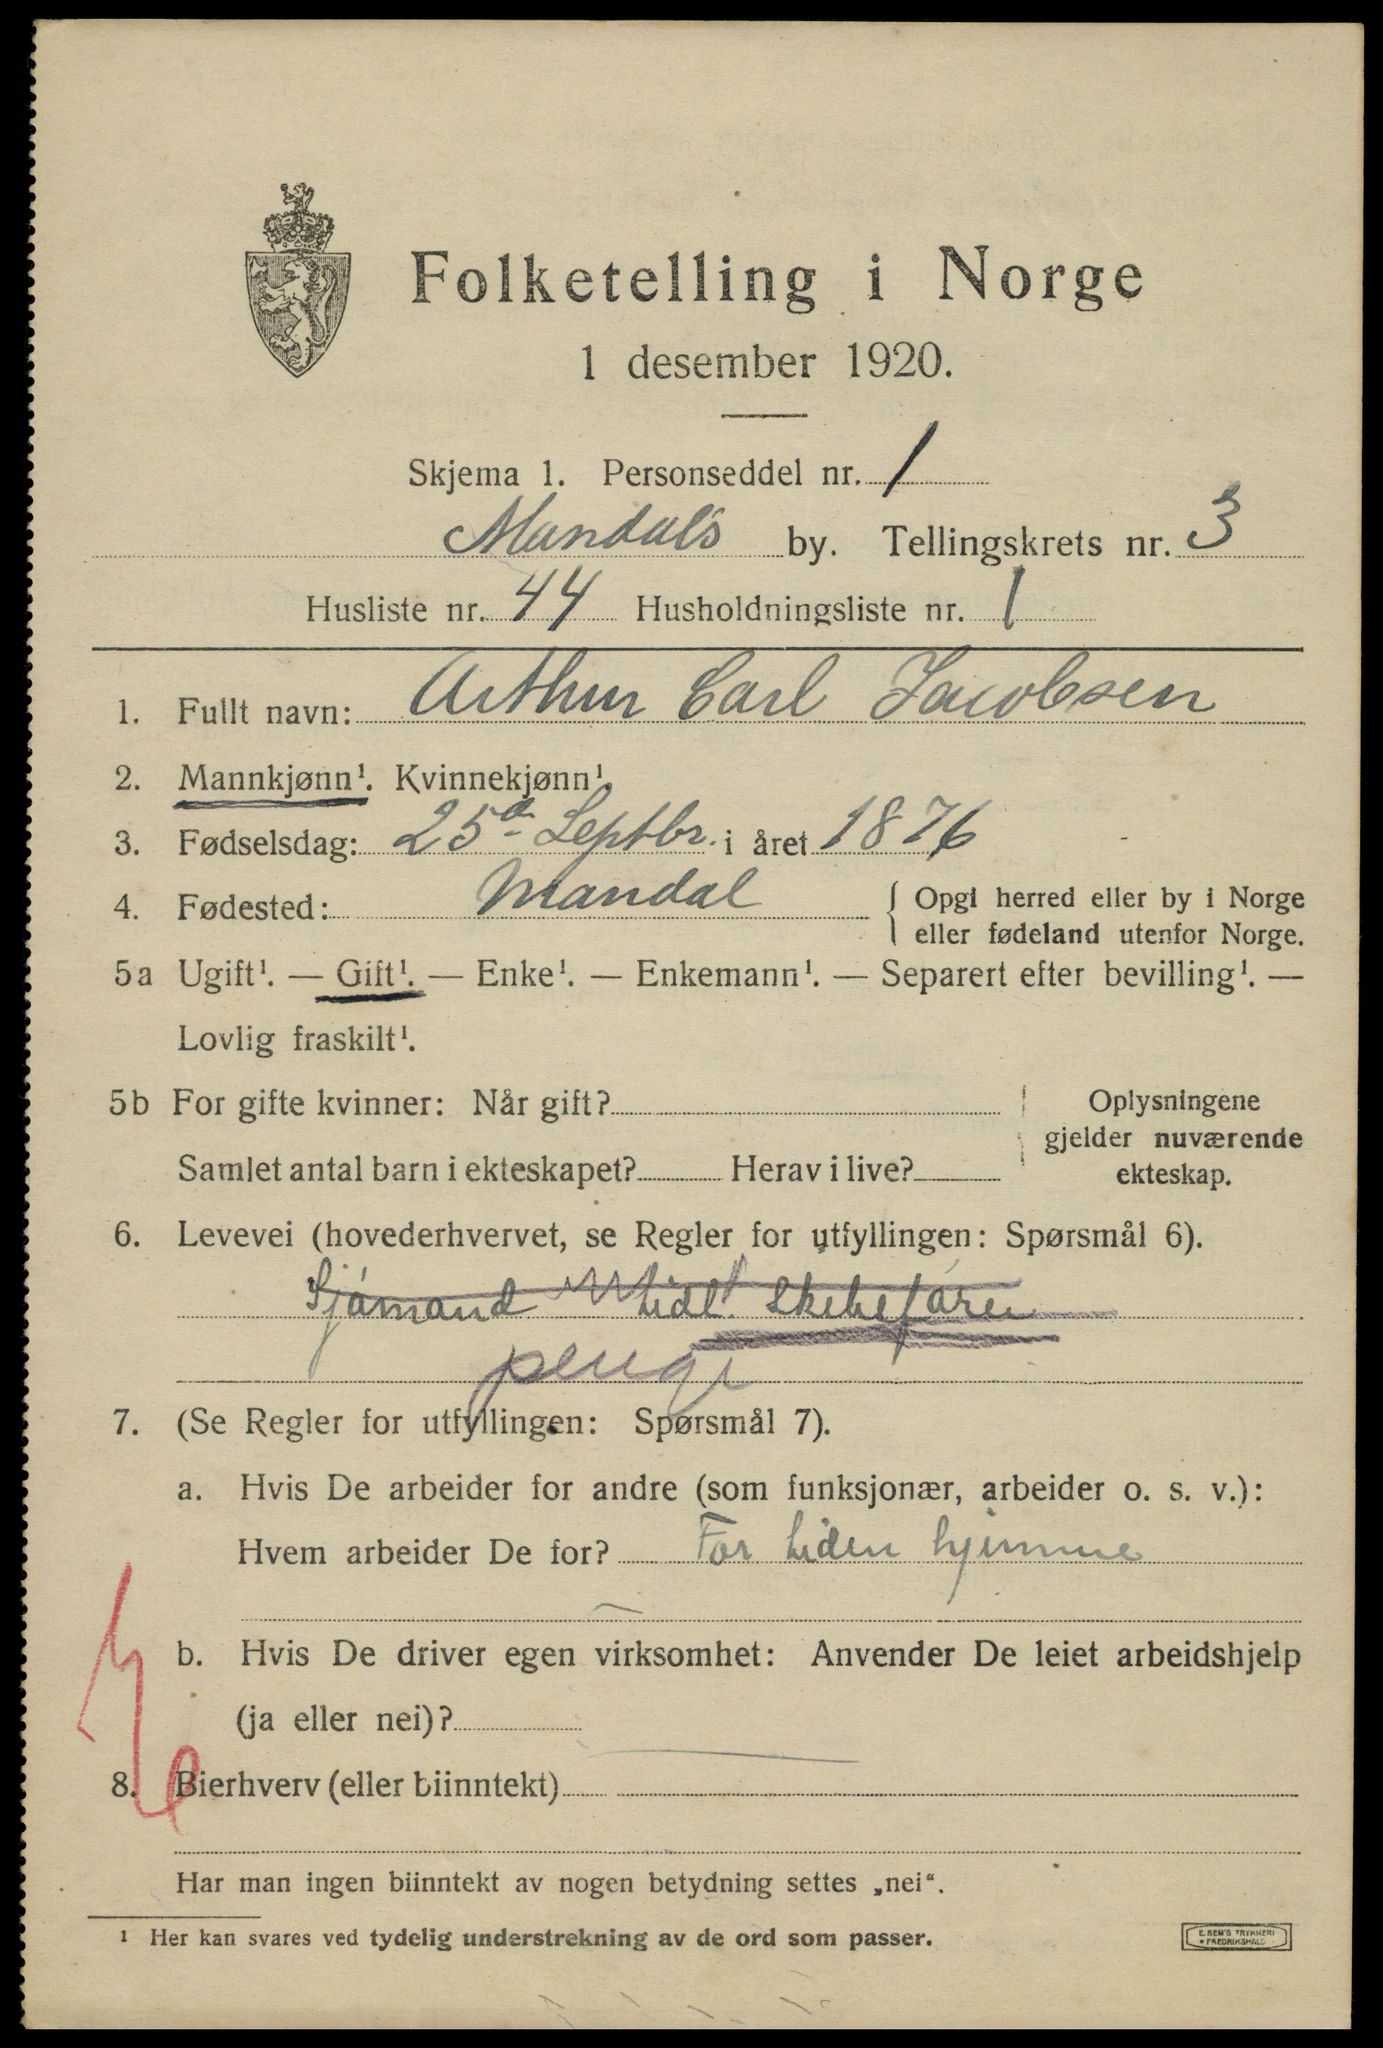 Folketelling i Norge
1 desember 1920.
Skjema 1. Personseddel nr. 1
Mandals by. Tellingskrets nr. 3
Husliste nr. 44 Husholdningsliste nr. 1
1. Fullt navn: Arthur Carl Jacobsen
2. Mannkjønn¹. Kvinnekjønn¹.
3. Fødselsdag: 25de Septbr. i året 1876
4. Fødested: Mandal { Opgi herred eller by i Norge
eller fødeland utenfor Norge.
5a Ugift¹. — Gift¹. — Enke¹. — Enkemann¹. — Separert efter bevilling¹. —
Lovlig fraskilt¹.
5b For gifte kvinner: Når gift? Oplysningene
gjelder nuværende
Samlet antal barn i ekteskapet? Herav i live? ekteskap.
6. Levevei (hovederhvervet, se Regler for utfyllingen: Spørsmål 6).
Sjómand tidl.
7. (Se Regler for utfyllingen: Spørsmål 7).
a. Hvis De arbeider for andre (som funksjonær, arbeider o. s. v.):
Hvem arbeider De for? For tiden hjemme
b. Hvis De driver egen virksomhet: Anvender De leiet arbeidshjelp
(ja eller nei)?
8. Bierhverv (eller biinntekt)
Har man ingen biinntekt av nogen betydning settes „nei“.
¹ Her kan svares ved tydelig understrekning av de ord som passer.
E. SEM'S TRYKKERI
FREDRIKSHALD